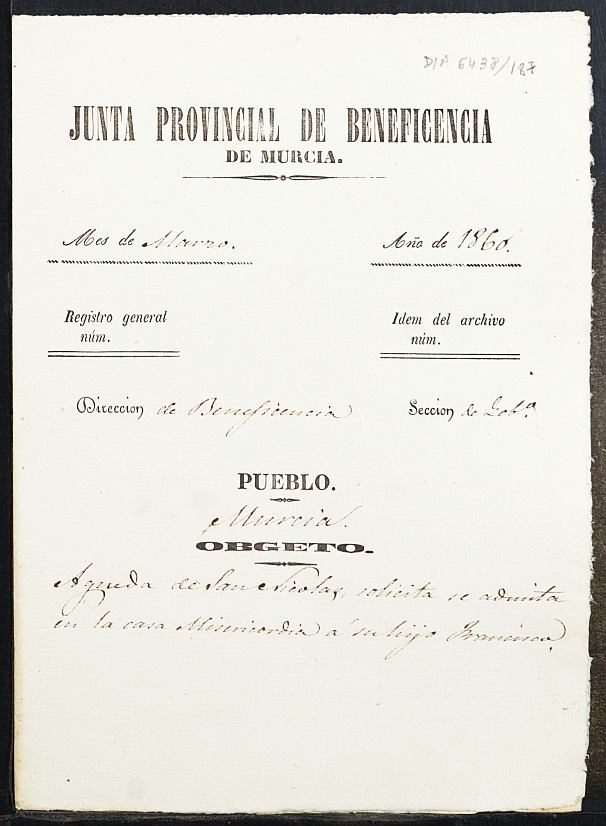 DIP 6438/187
JUNTA PROVINCIAL DE BENEFICENCIA
DE MURCIA.
Mes de Marzo. Año de 1860.
Registro general Idem del archivo
núm. núm.
Direccion de Beneficencia Seccion de Gobª.
PUEBLO.
Murcia.
OBGETO.
Agueda de San Nicolas, solicita se admita
en la casa Misericordia á su hijo Francisco